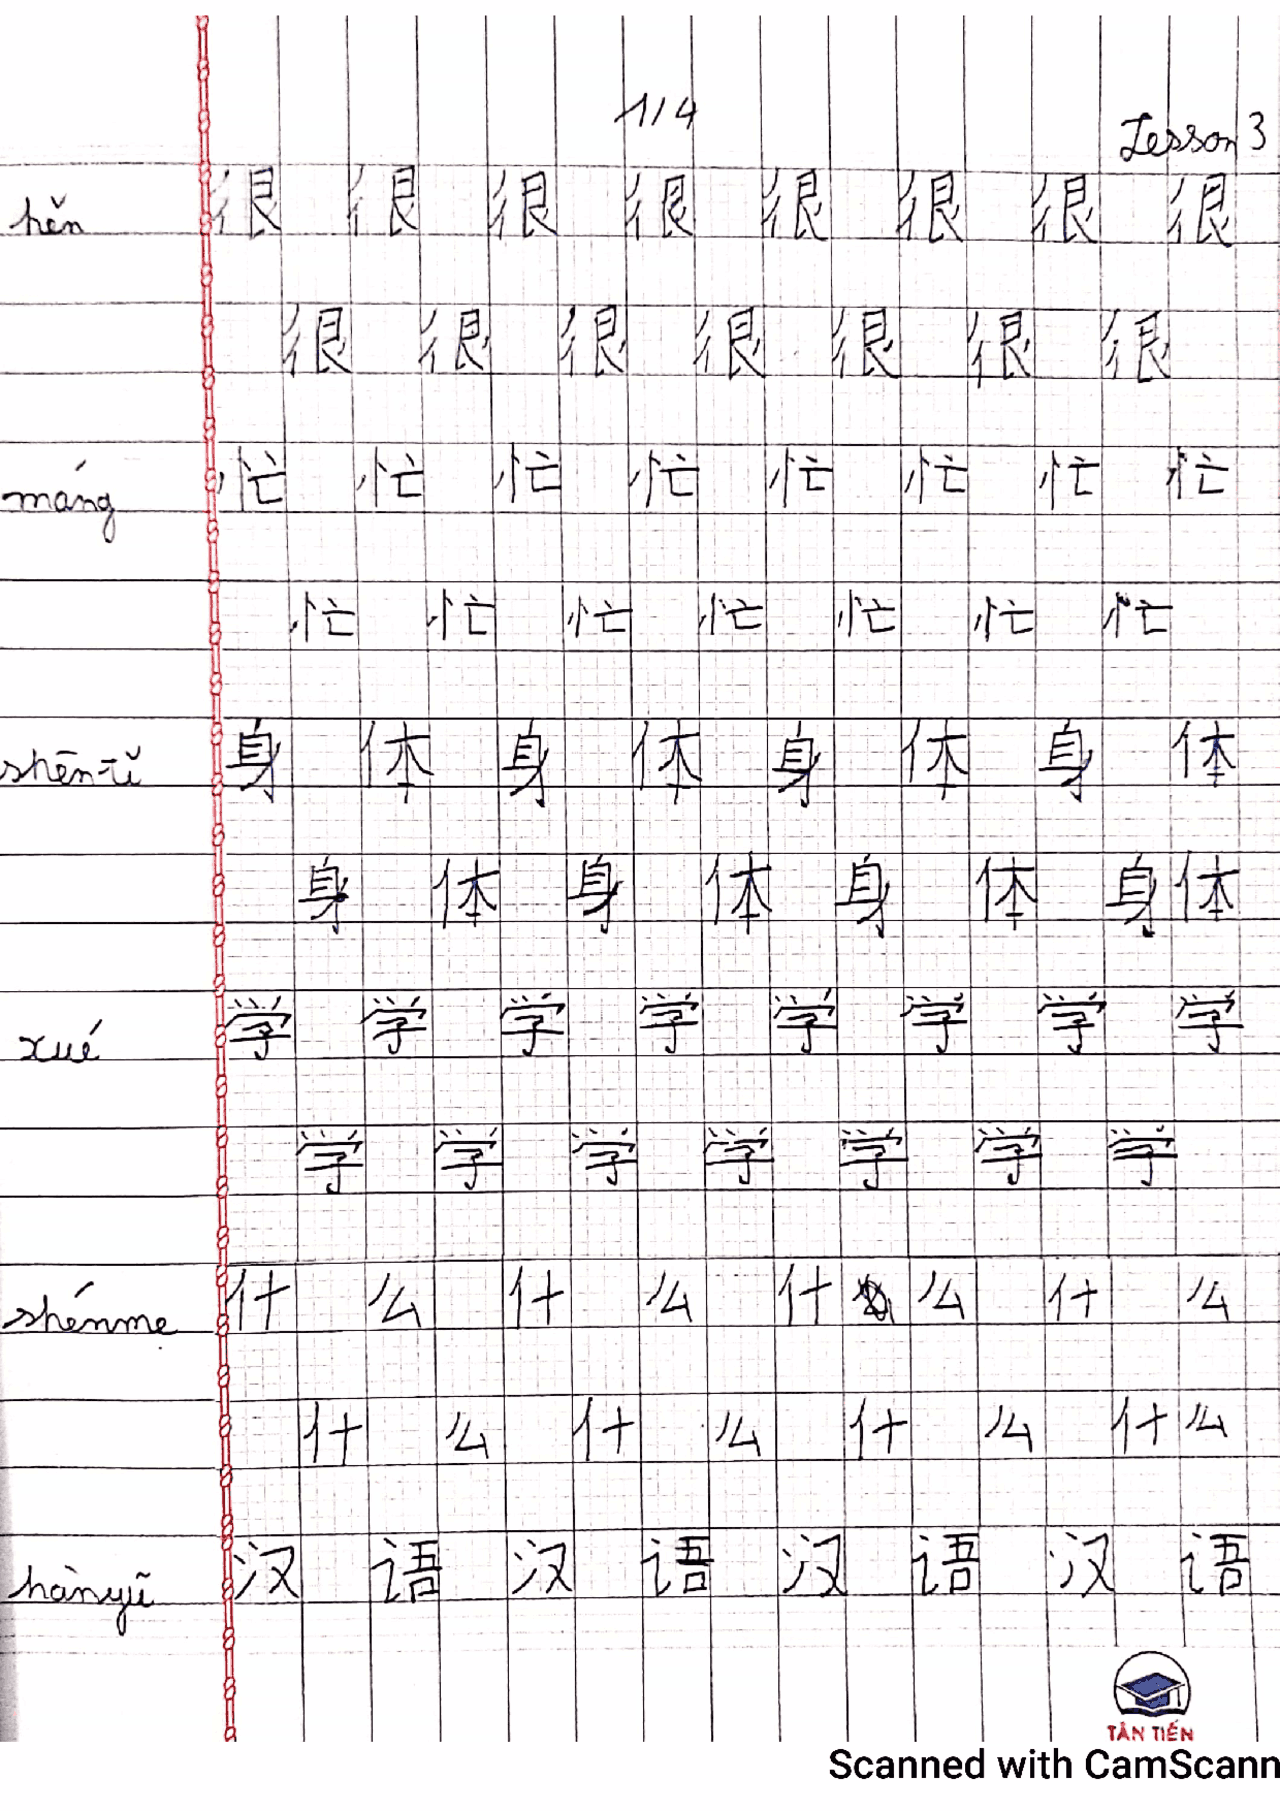 1/4
Lesson 3
hěn 很 很 很 很 很 很 很 很
很 很 很 很 很 很 很
máng 忙 忙 忙 忙 忙 忙 忙 忙
忙 忙 忙 忙 忙 忙 忙
shēn-tǐ 身 体 身 体 身 体 身 体
身 体 身 体 身 体 身 体
xué 学 学 学 学 学 学 学 学
学 学 学 学 学 学 学
shénme 什 么 什 么 什 么 什 么
什 么 什 么 什 么 什 么
hànyǔ 汉 语 汉 语 汉 语 汉 语
TÂN TIẾN
Scanned with CamScann